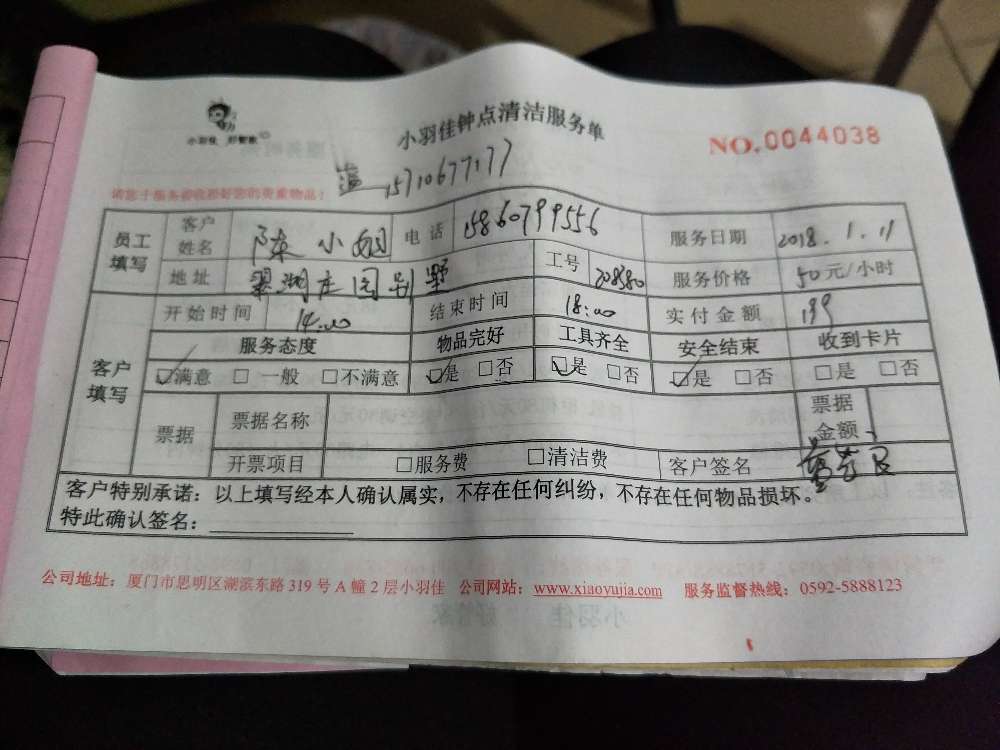 小羽佳 好管家
小羽佳钟点清洁服务单
NO.0044038
15710677177
请您于服务前收拾好您的贵重物品!
员工填写 客户姓名 陈小姐 电话 15860799556 服务日期 2018.1.11
地址 翠湖庄园别墅 工号 服务价格 50元/小时
客户填写 开始时间 14:00 结束时间 18:00 实付金额 199
服务态度 物品完好 工具齐全 安全结束 收到卡片
☑满意 □一般 □不满意 ☑是 □否 ☑是 □否 ☑是 □否 □是 □否
票据 票据名称 票据金额
开票项目 □服务费 □清洁费 客户签名
客户特别承诺：以上填写经本人确认属实，不存在任何纠纷，不存在任何物品损坏。
特此确认签名：
公司地址：厦门市思明区湖滨东路 319 号 A 幢 2 层小羽佳 公司网站：www.xiaoyujia.com 服务监督热线：0592-5888123